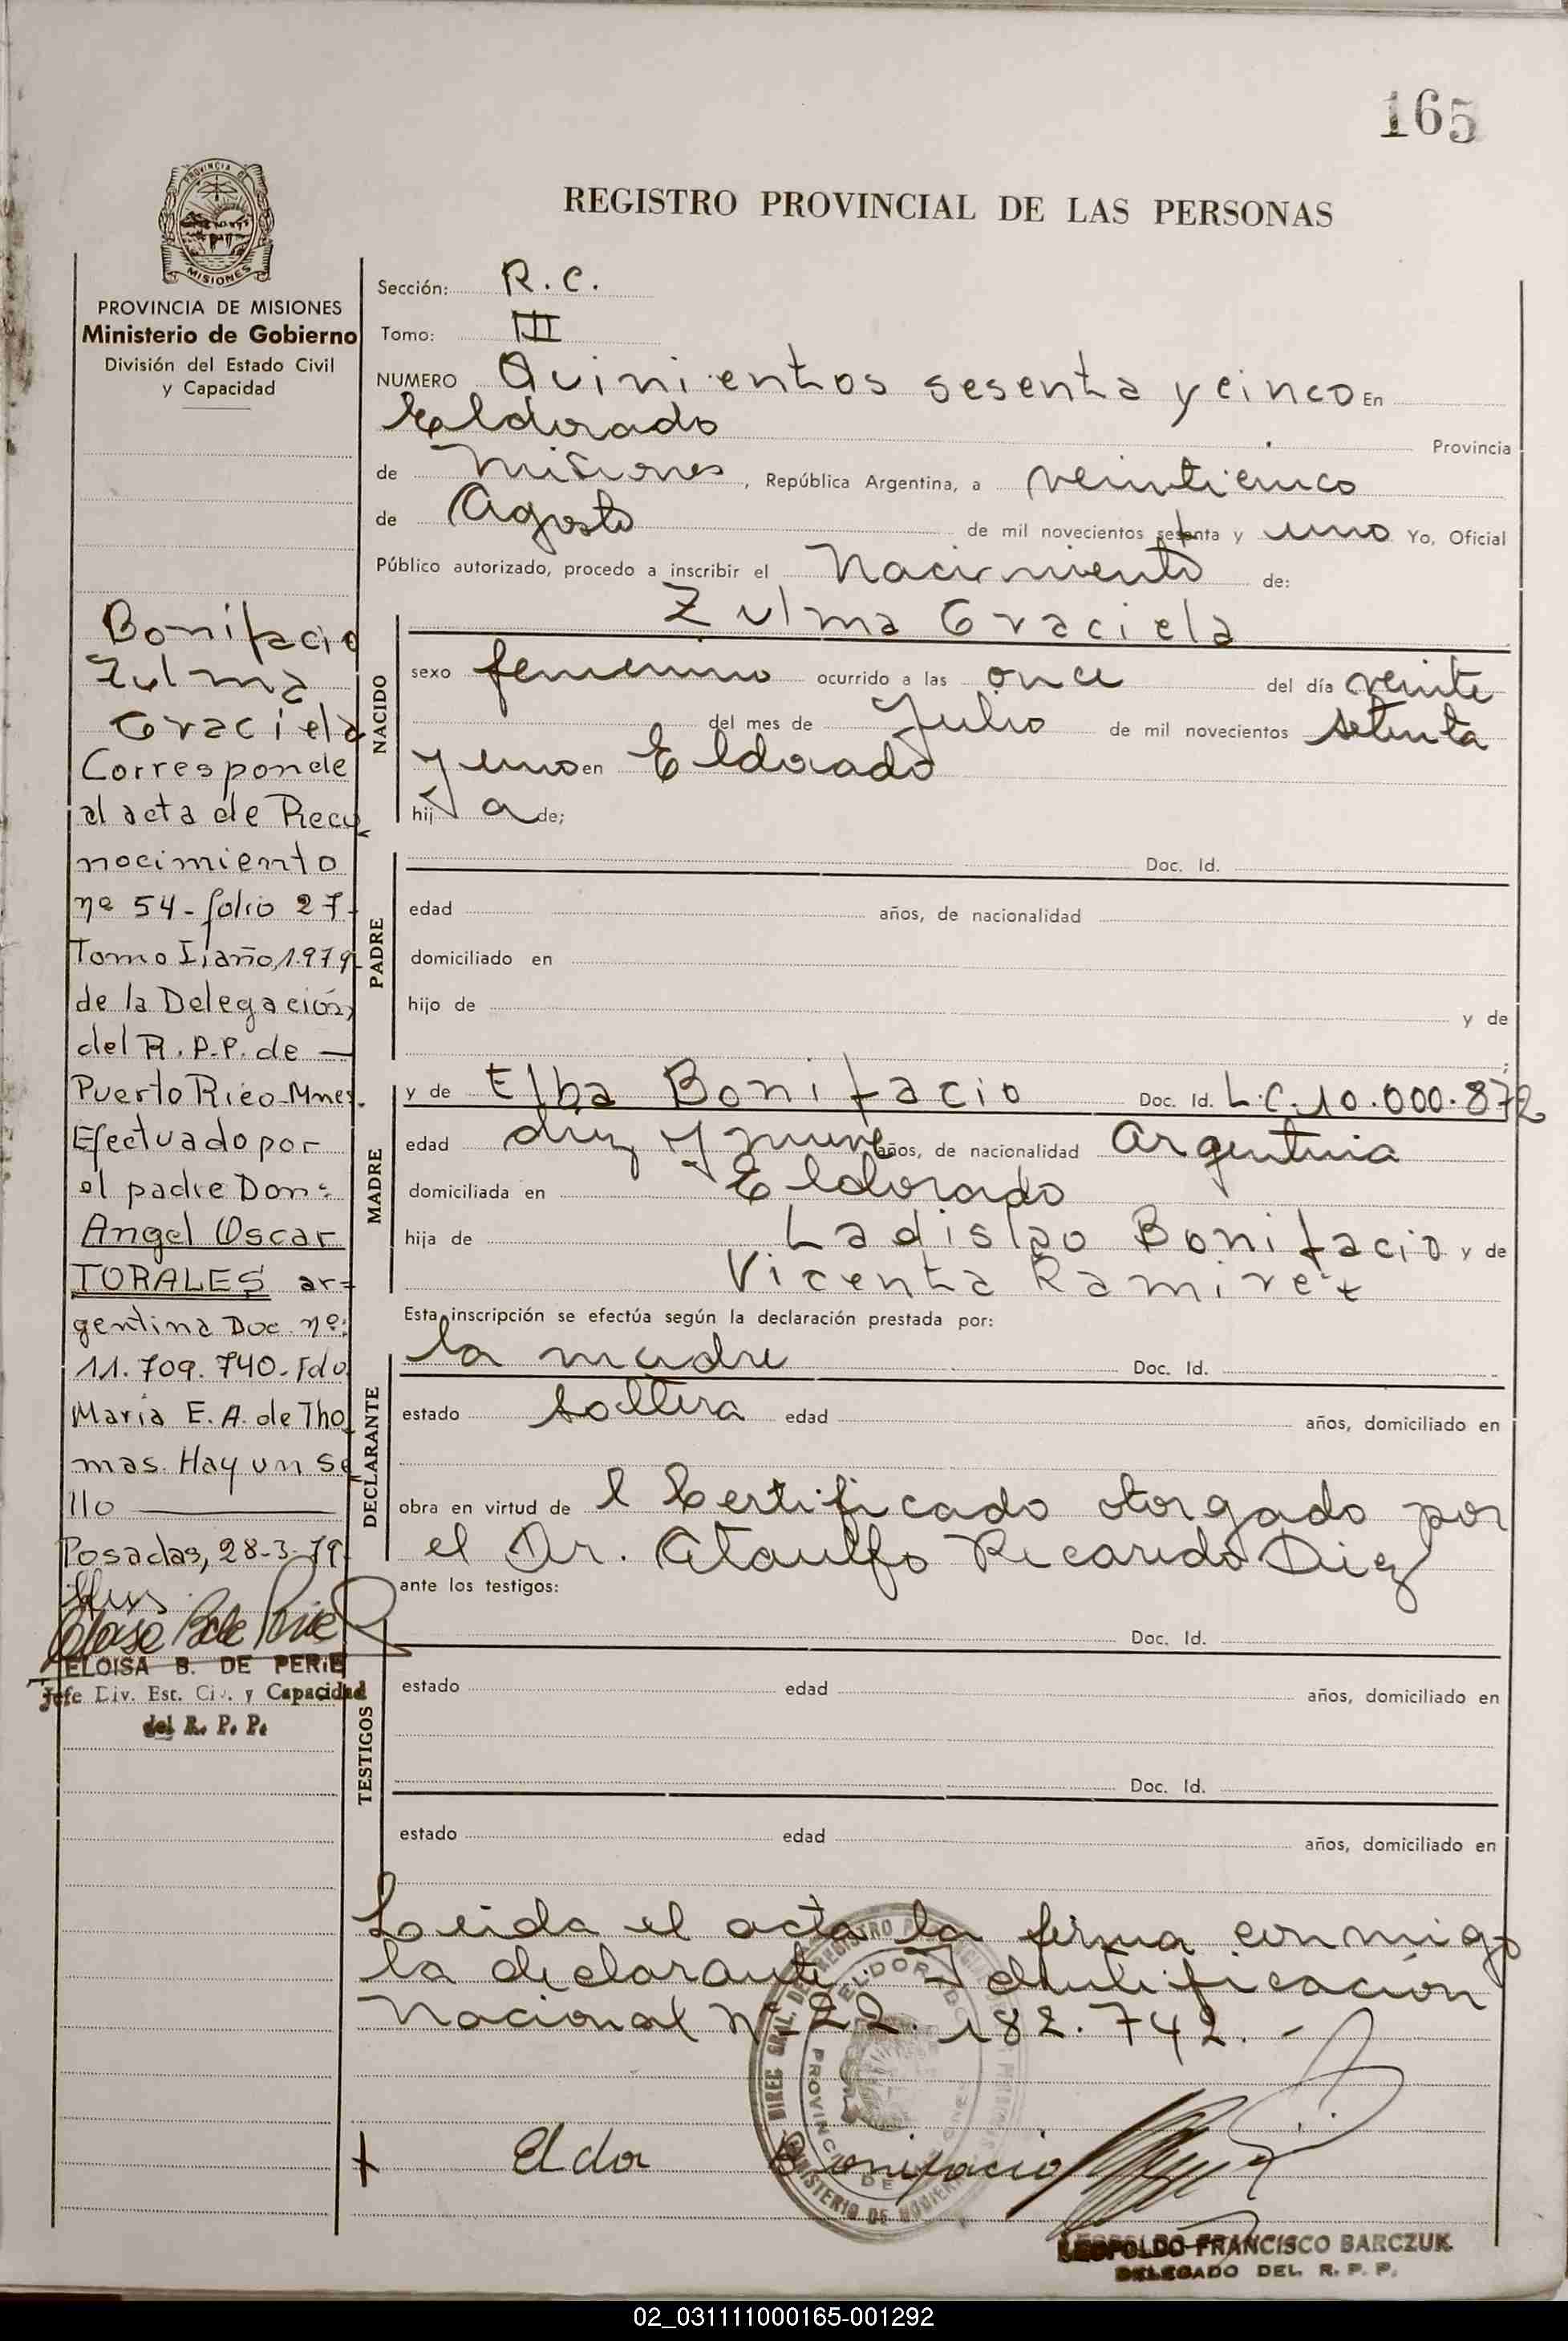 165
REGISTRO PROVINCIAL DE LAS PERSONAS
PROVINCIA DE MISIONES
Ministerio de Gobierno
División del Estado Civil
y Capacidad
Bonifacio
Zulma
Graciela
Corresponde
al acta de Reco
nocimiento
nº 54 - folio 27-
Tomo I, año, 1.979-
de la Delegación,
del R. P.P. de —
Puerto Rico-Mnes.
Efectuado por
el padre Don:
Angel Oscar
TORALES ar=
gentina Doc. nº:
11.709.740- Fdo
Maria E. A. de Tho
mas. Hay un Se
llo ———
Posadas, 28-3-79
ELOISA B. DE PERIE
Jefe Div. Est. Civ. y Capacidad
del R. P. P.
Sección: R. C.
Tomo: III
NUMERO Quinientos sesenta y cinco En
Eldorado Provincia
de Misiones, República Argentina, a veinticinco
de Agosto de mil novecientos setenta y uno Yo, Oficial
Público autorizado, procedo a inscribir el Nacimiento de:
NACIDO
Zulma Graciela
sexo femenino ocurrido a las once del día veinte
del mes de Julio de mil novecientos setenta
y uno en Eldorado
hij a de;
PADRE
Doc. Id.
edad años, de nacionalidad
domiciliado en
hijo de y de
;
MADRE
y de Elba Bonifacio Doc. Id. L.C. 10.000.872
edad diez y nueve años, de nacionalidad Argentina
domiciliada en Eldorado
hija de Ladislao Bonifacio y de
Vicenta Ramirez
Esta inscripción se efectúa según la declaración prestada por:
DECLARANTE
la madre Doc. Id.
estado soltera edad años, domiciliado en
obra en virtud de l Certificado otorgado por
el Dr. Ataulfo Ricardo Diez
ante los testigos:
TESTIGOS
Doc. Id.
estado edad años, domiciliado en
Doc. Id.
estado edad años, domiciliado en
Leida el acta la firma conmigo
la declarante. Identificación
Nacional Nº 22.182.742. -
+ Elda Bonifacio
ELDORADO
PROVINCIA DE MISIONES
LEOPOLDO FRANCISCO BARCZUK
DELEGADO DEL R. P. P.
02_031111000165-001292